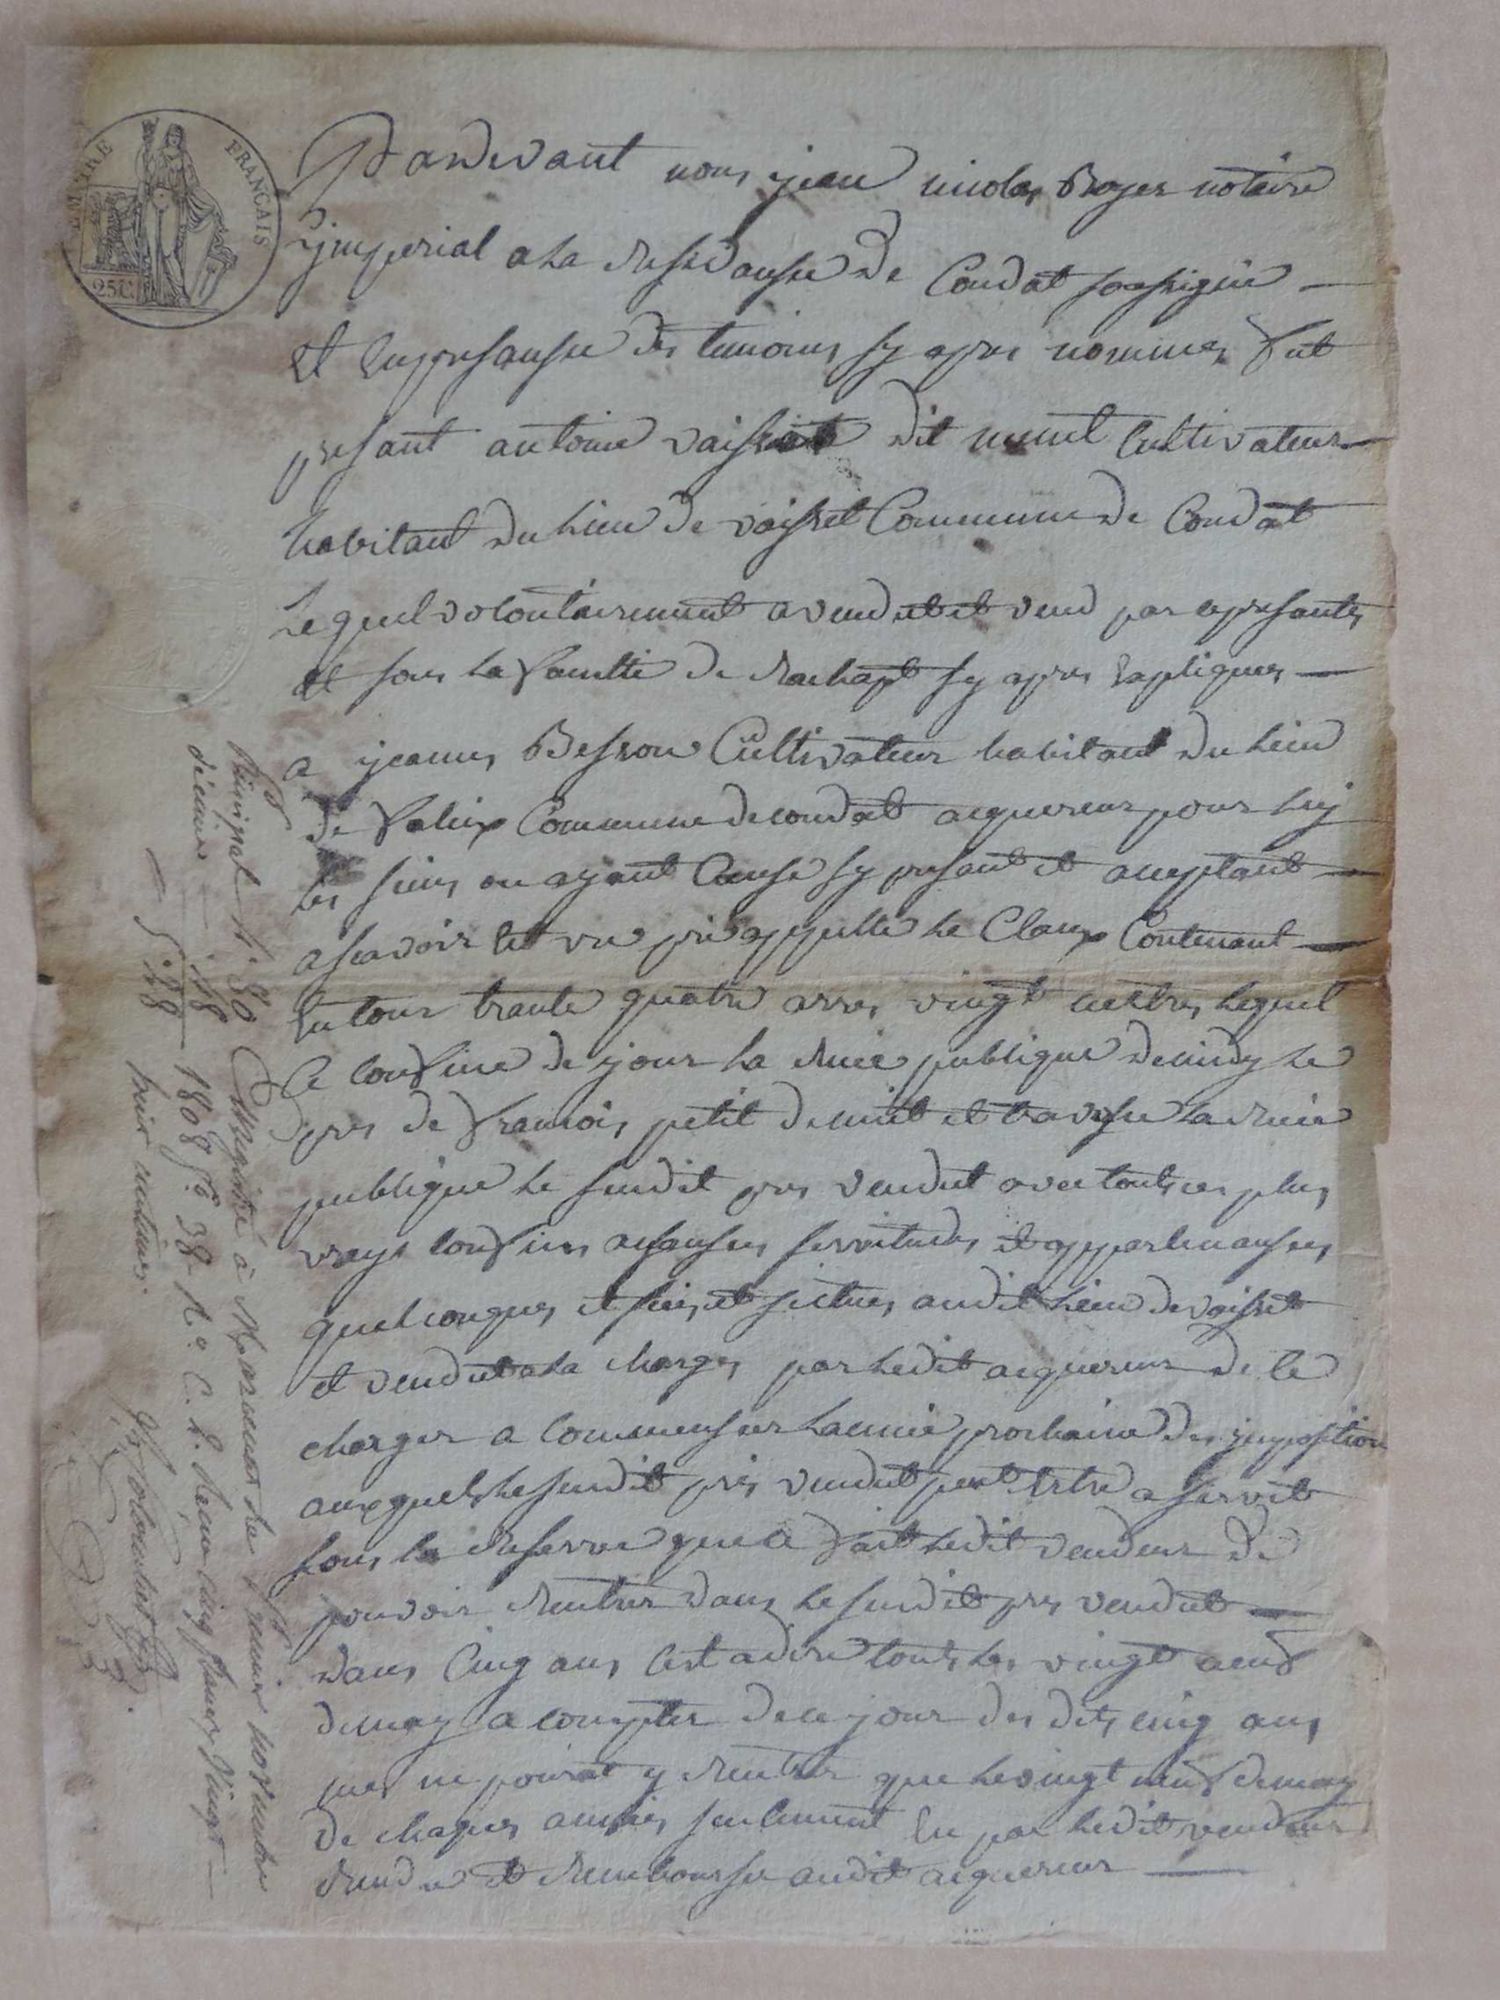 EMPIRE FRANÇAIS
25 C.
Pardevant nous jean nicolas Boyer notaire
jmperial a la residansse de Condat soussigné
et en presansse des temoins sy apres nommes fut
presant antoine vaisset dit cultivateur
habitant du lieu de vaisset Commune de Condat
Lequel volontairement a vendut et vend par ses presantes
et sous la faculté de rachapt sy apres expliquer
a jeames Besson Cultivateur habitant du lieu
de Commune de condat aquereur pour luy
les siens ou ayant Cause sy presant et aceptant
a scavoir est un pré appellé le Claux Contenant
en tour trante quatre ares vingt mettres lequel
se confine de jour la ruee publique de midy le
pres de francois petit de nuit et traverse la ruee
publique le susdit pres vendut avec touts ces plus
vrays confins aisanses servitudes et appartenanses
quelconques et sis et situes audit lieu de vaisset
et vendut a la charges par ledit aquereur de le
charger a commensser l'année prochaine des jmposition
auxquels le susdit prés vendut peut etre asservit
sous la reserve que a fait ledit vendeur de
pouvoir rentrer dans le susdit pres vendut
dans cinq ans cest adire touts les vingt neuf
de may a compter de ce jour des dits cinq ans
mes ne pourat y rentrer que le vingt neuf de may
de chaques annes seulement en par ledit vendeur
rendre et rembourse audit aquereur
Principal 4. 80 Enregistré à Marcenat le premier novembre
décime .48 1808 fo 38 Ro C. 2. Reçu cinq francs vingt
5.28 huit centimes.